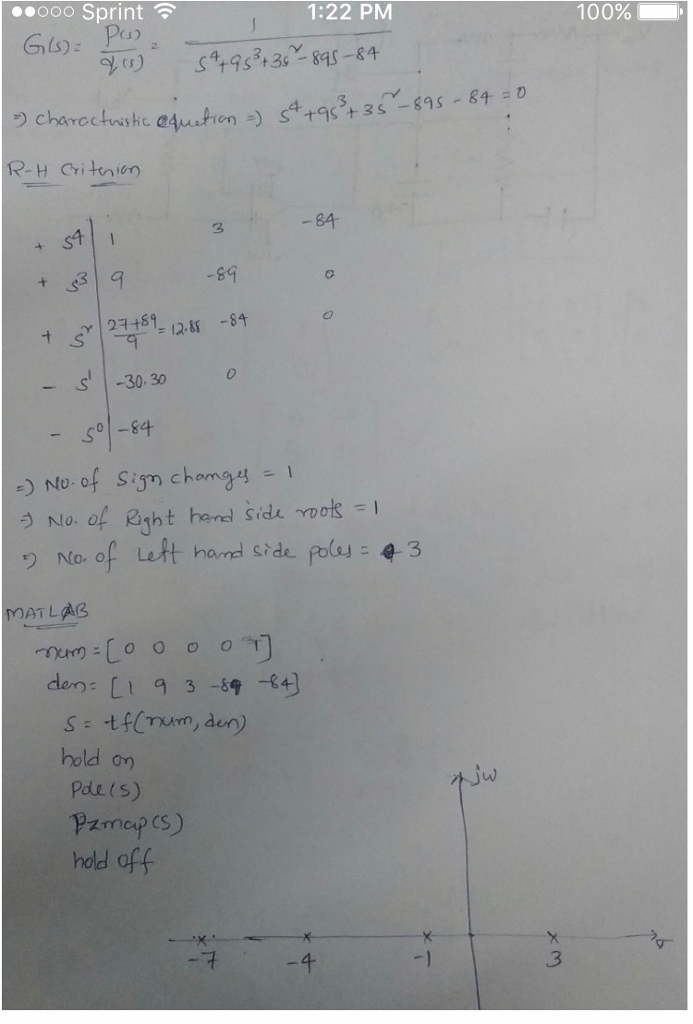 ●●○○○ Sprint 1:22 PM 100%
G(s) = P(s)/q(s) = 1/(s⁴+9s³+3s²-89s-84)
⇒ charactuistic equetion ⇒ s⁴+9s³+3s²-89s-84=0
R-H Criterion
+ s⁴ | 1 3 -84
+ s³ | 9 -89 0
+ s² | (27+89)/9 = 12.88 -84 0
- s¹ | -30.30 0
- s⁰ | -84
⇒ No. of Sign changes = 1
⇒ No. of Right hand side roots = 1
⇒ No. of Left hand side poles = 3
MATLAB
num = [0 0 0 0 1]
den = [1 9 3 -89 -84]
S = tf(num, den)
hold on
Pole(S)
Pzmap(S)
hold off
jw
-7 -4 -1 3
σ